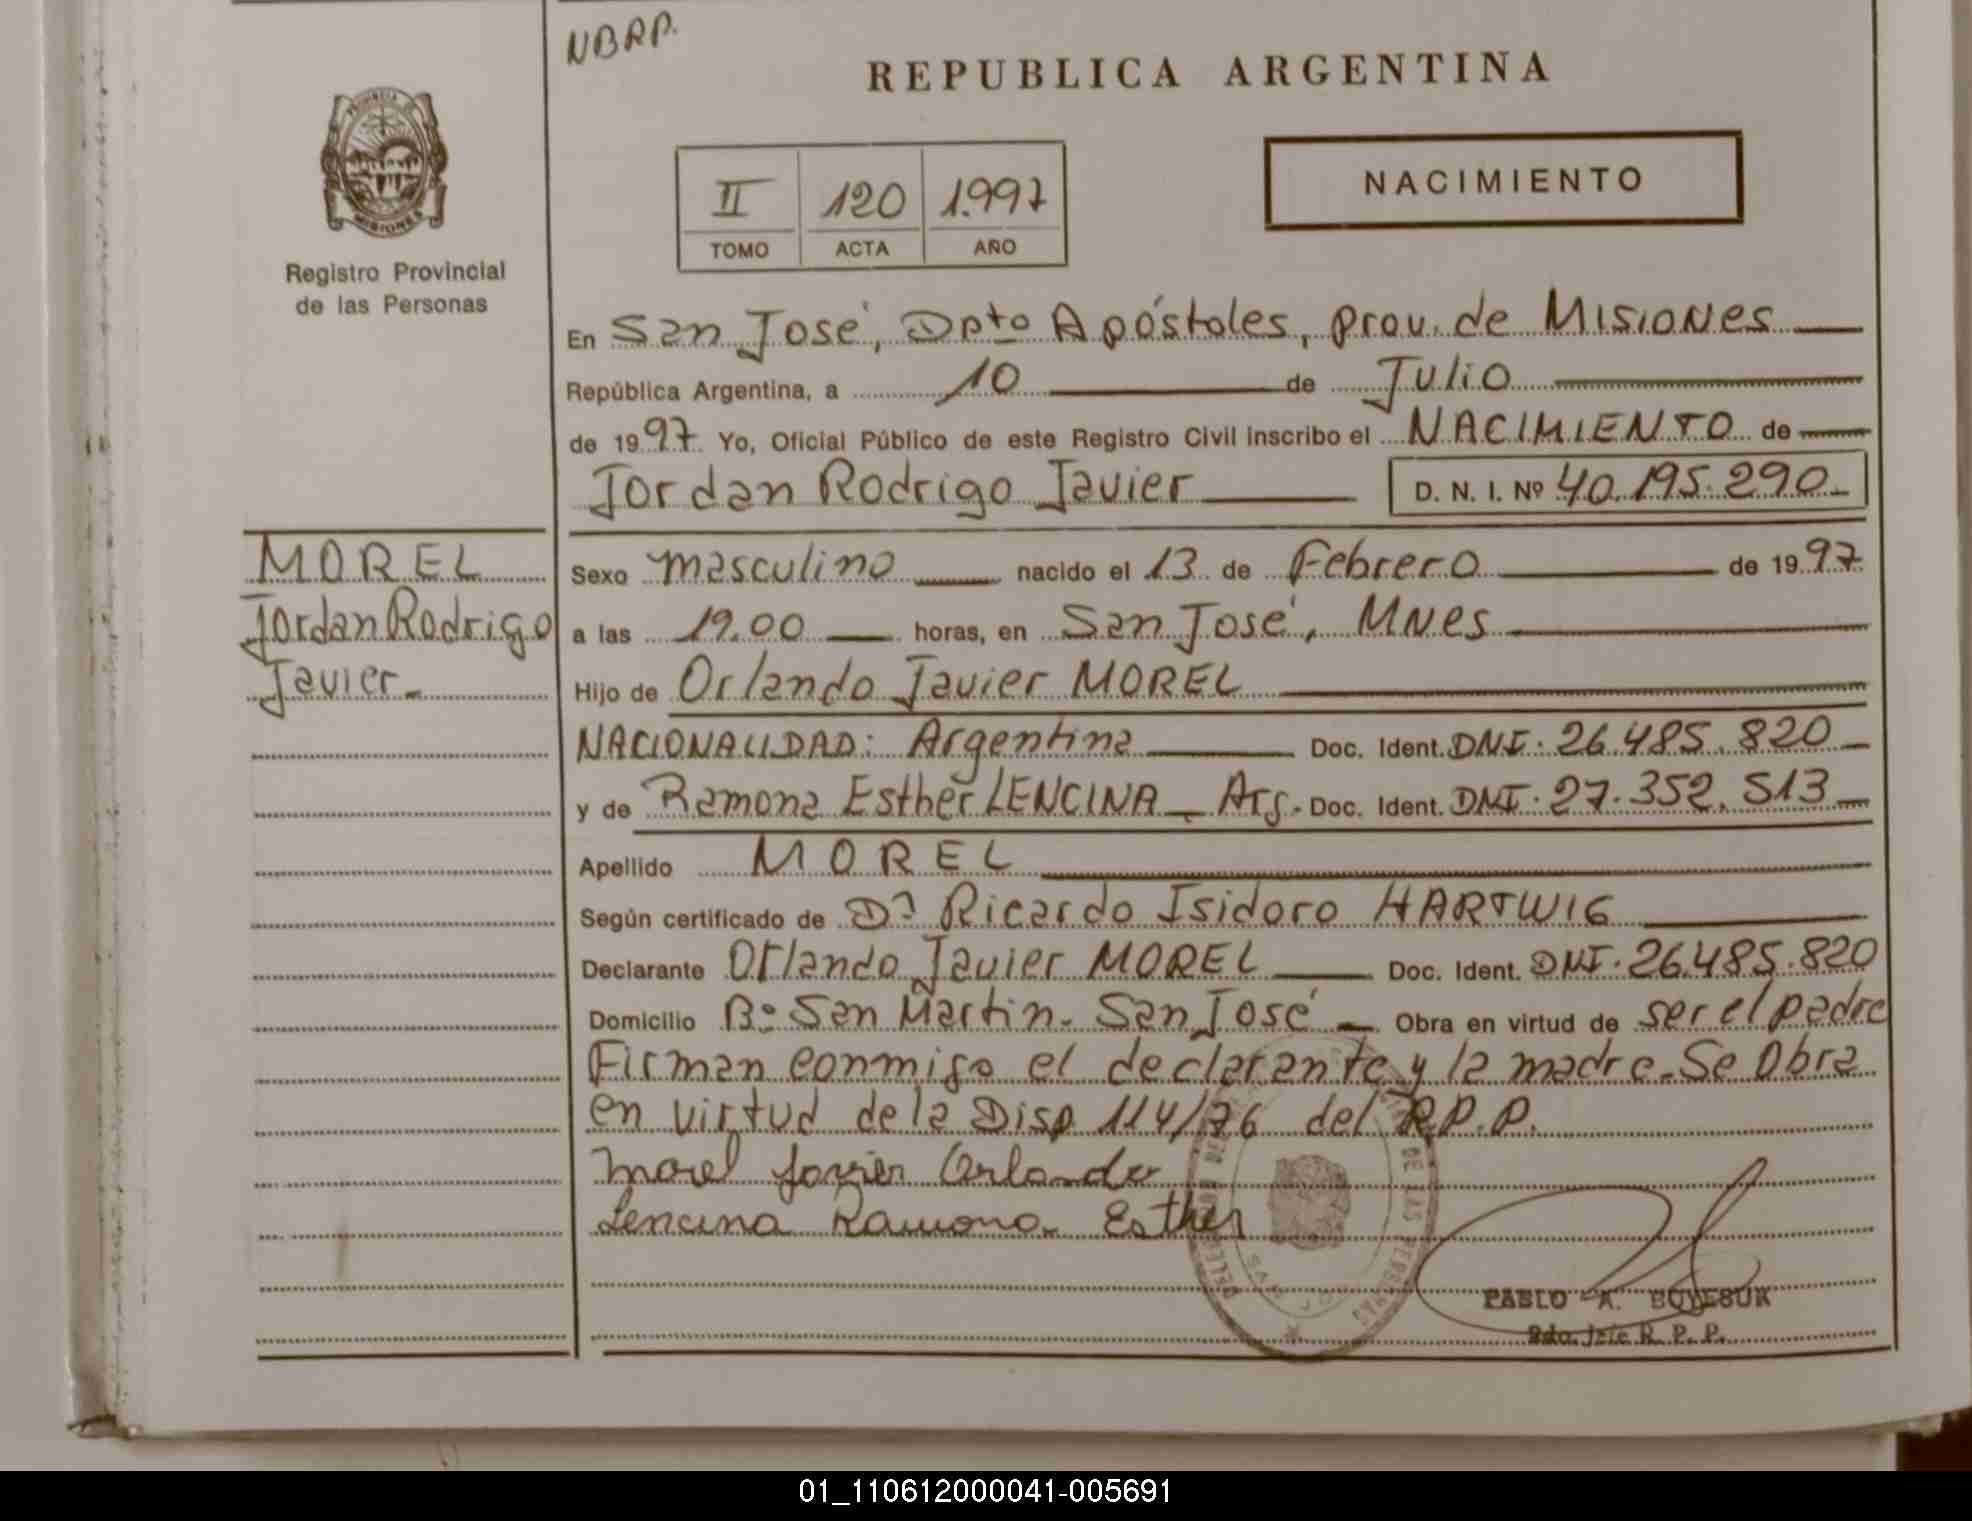 NBRP.
REPUBLICA ARGENTINA
PROVINCIA DE
MISIONES
Registro Provincial
de las Personas
II 120 1.997
TOMO ACTA AÑO
NACIMIENTO
En San José, Dpto Apóstoles, prov. de MISIONES
República Argentina, a 10 de Julio
de 1997. Yo, Oficial Público de este Registro Civil inscribo el NACIMIENTO de
Jordan Rodrigo Javier D. N. I. Nº 40.195.290
MOREL
Jordan Rodrigo
Javier
Sexo masculino nacido el 13 de Febrero de 1997
a las 19.00 horas, en San José, MNes
Hijo de Orlando Javier MOREL
NACIONALIDAD: Argentina Doc. Ident. DNI. 26.485.820
y de Ramona Esther LENCINA Arg. Doc. Ident. DNI. 27.352.513
Apellido MOREL
Según certificado de Dr Ricardo Isidoro HARTWIG
Declarante Orlando Javier MOREL Doc. Ident. DNI. 26.485.820
Domicilio Bº San Martin. San José Obra en virtud de ser el padre
Firman conmigo el declarante y la madre. Se Obra
en virtud de la Disp 114/76 del R.P.P.
Morel Javier Orlando
Lencina Ramona Esther
DE LAS PERSONAS
PABLO A.
R. P. P.
01_110612000041-005691